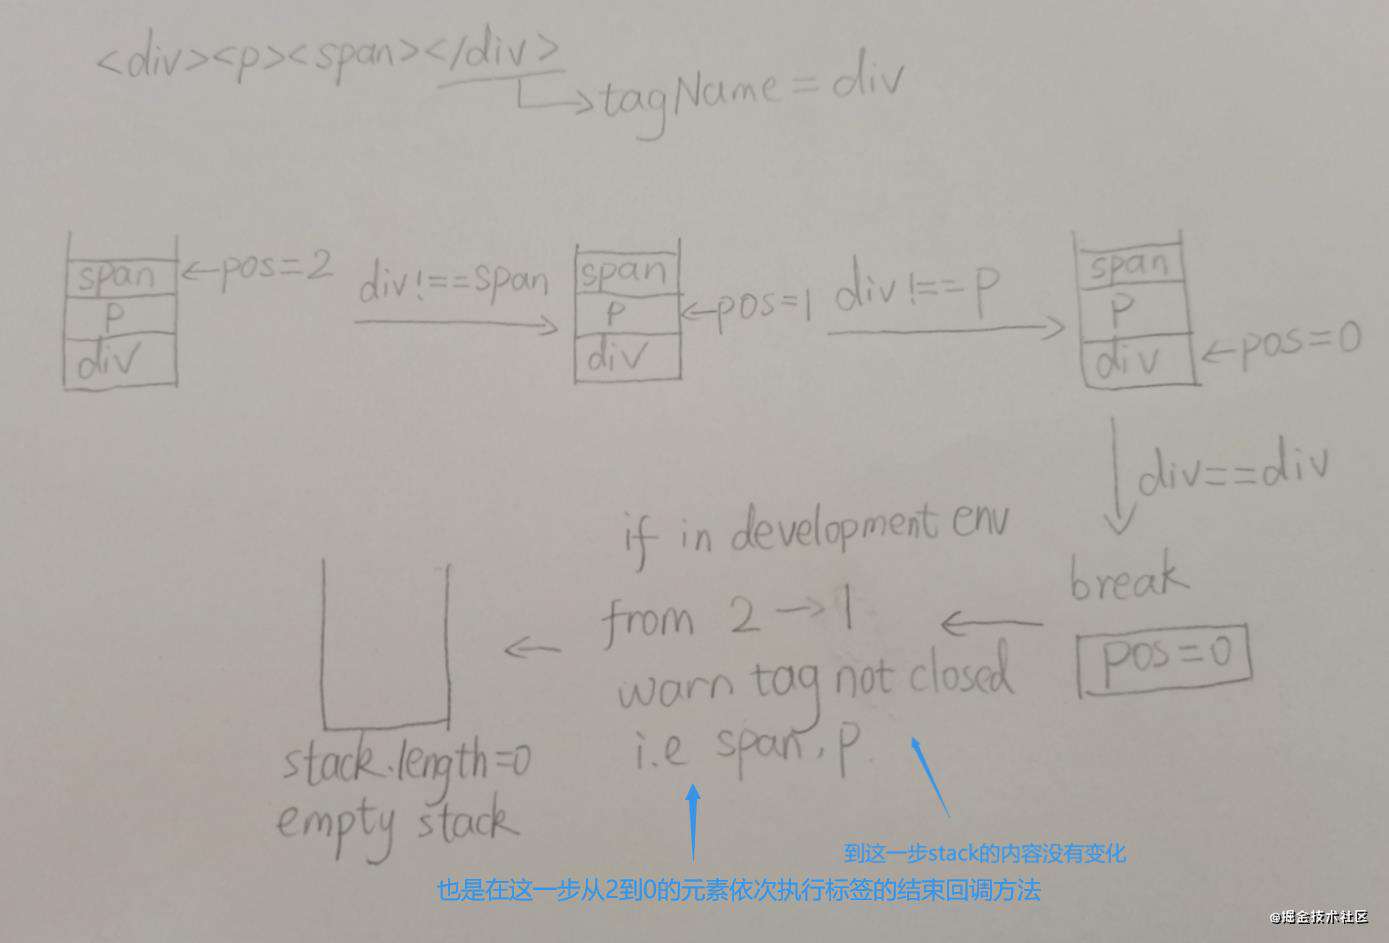 <div><p><span></div>
tagName = div
span ←pos=2
p
div
div!==span
span
p ←pos=1
div
div!==p
span
p
div ←pos=0
div==div
break
pos=0
if in development env
from 2→1
warn tag not closed
i.e span, p.
stack.length=0
empty stack
到这一步stack的内容没有变化
也是在这一步从2到0的元素依次执行标签的结束回调方法
@掘金技术社区